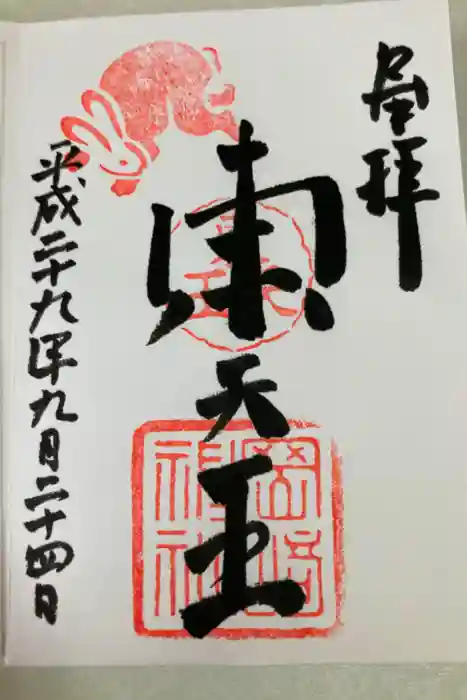 奉拝
東天王
岡﨑神社
平成二十九年九月二十四日